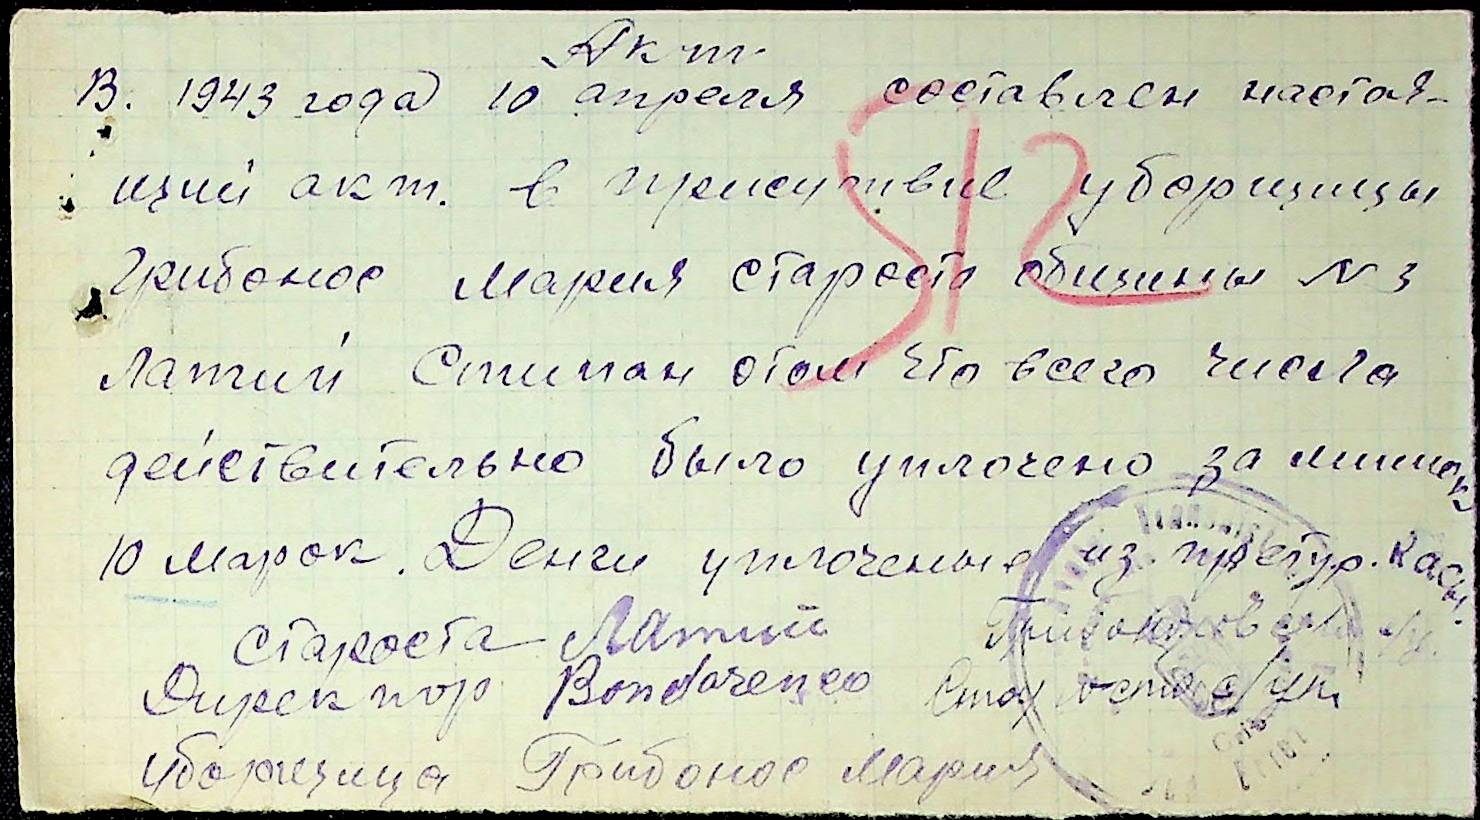 Акт.
В. 1943 года 10 апреля составлен настоя-
щий акт. в присутвие уборщицы
Грибонос Мария староста общины N 3
Латий Стипан отом что всего числа
действительно было уплочено за мишок
10 марок. Денги уплочены из претур. касы.
512
староста Латий
Директор Bondarenco Староста
уборщица Грибонос Мария